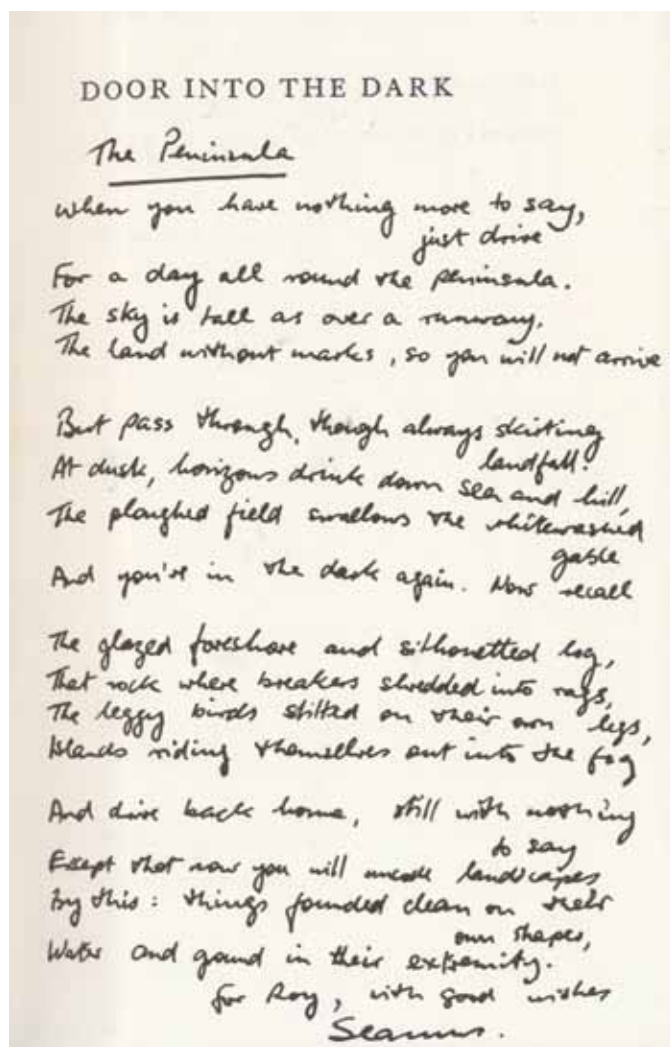 DOOR INTO THE DARK
The Peninsula
When you have nothing more to say,
just drive
For a day all round the peninsula.
The sky is tall as over a runway,
The land without marks, so you will not arrive
But pass through, though always skirting
landfall.
At dusk, horizons drink down sea and hill,
The ploughed field swallows the whitewashed
gable
And you're in the dark again. Now recall
The glazed foreshore and silhouetted log,
That rock where breakers shredded into rags,
The leggy birds stilted on their own legs,
Islands riding themselves out into the fog
And drive back home, still with nothing
to say
Except that now you will uncode landscapes
By this: things founded clean on their
own shapes,
Water and ground in their extremity.
for Roy, with good wishes
Seamus.